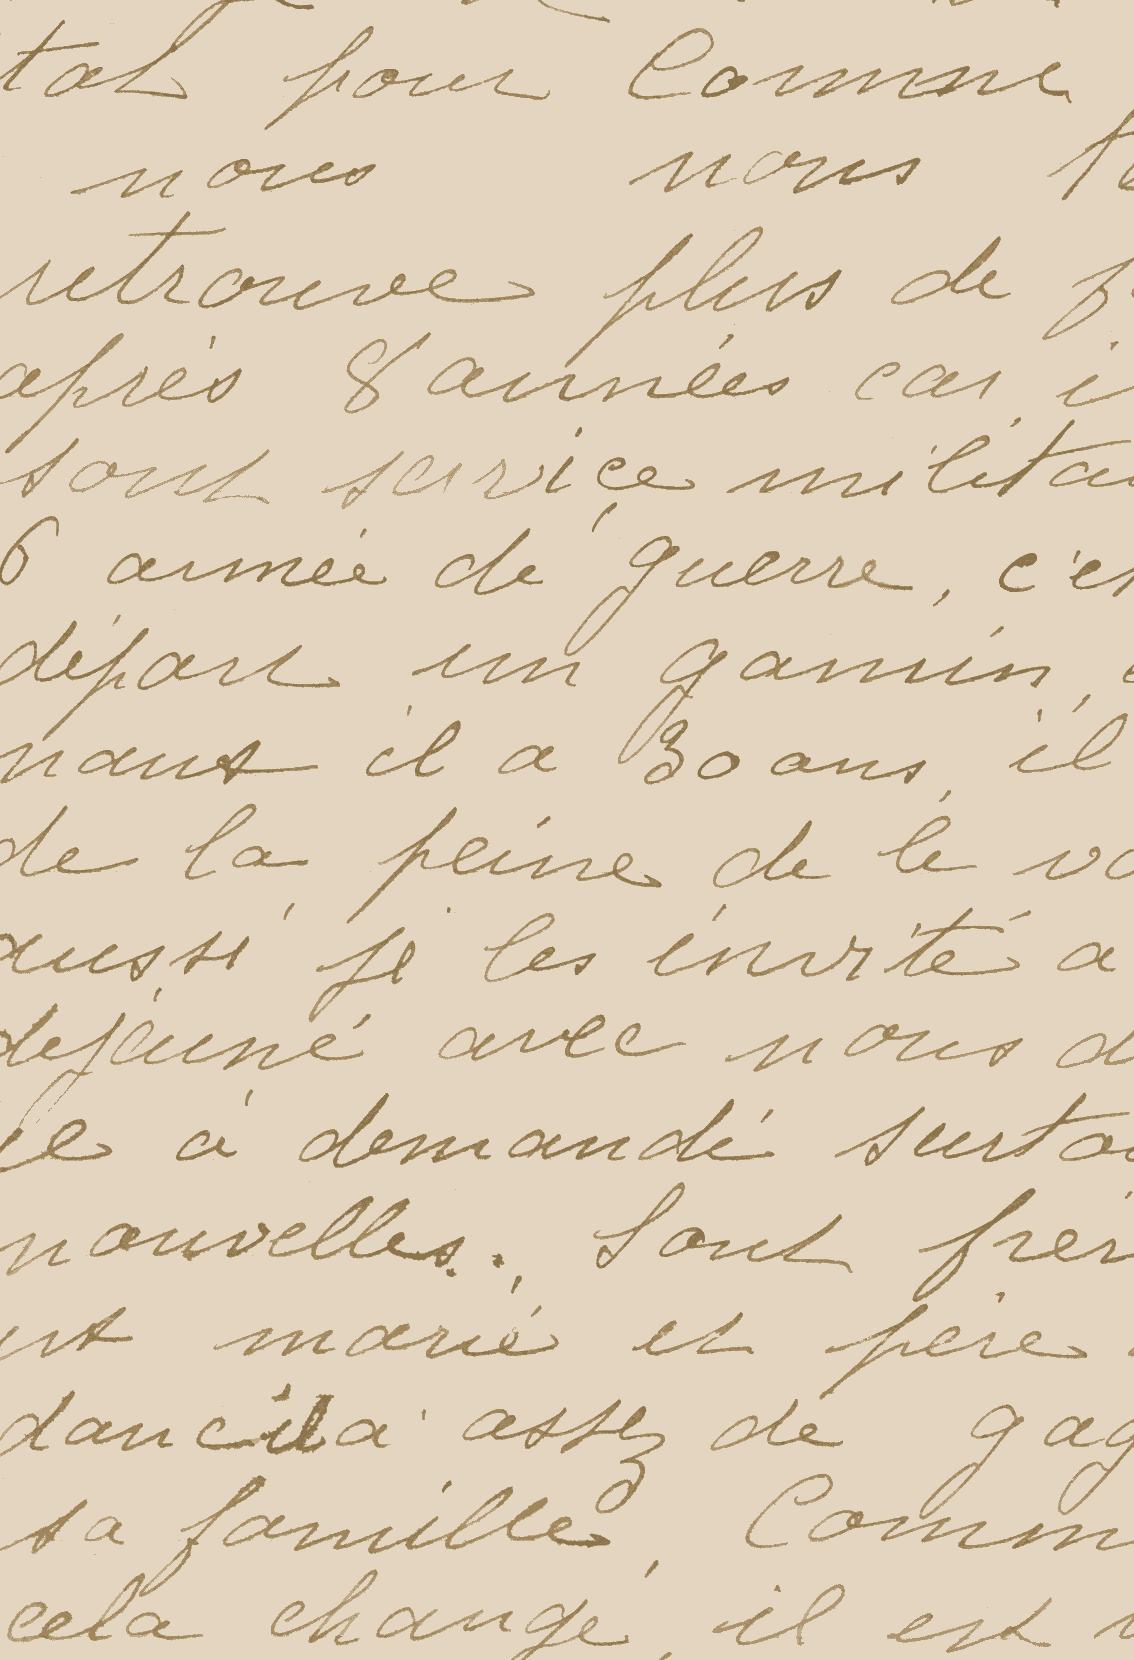 pour Comme
nous nous
retrouve plus de
après 8 années car
sont service
6 année de guerre, c'es
départ un gamin,
nant il a 30 ans, il
de la peine de le
aussi je les invité a
dejeuné avec nous
à demandé
nouvelles.. Sont
marié et père
il a assez de
sa famille, Comm
cela change, il est